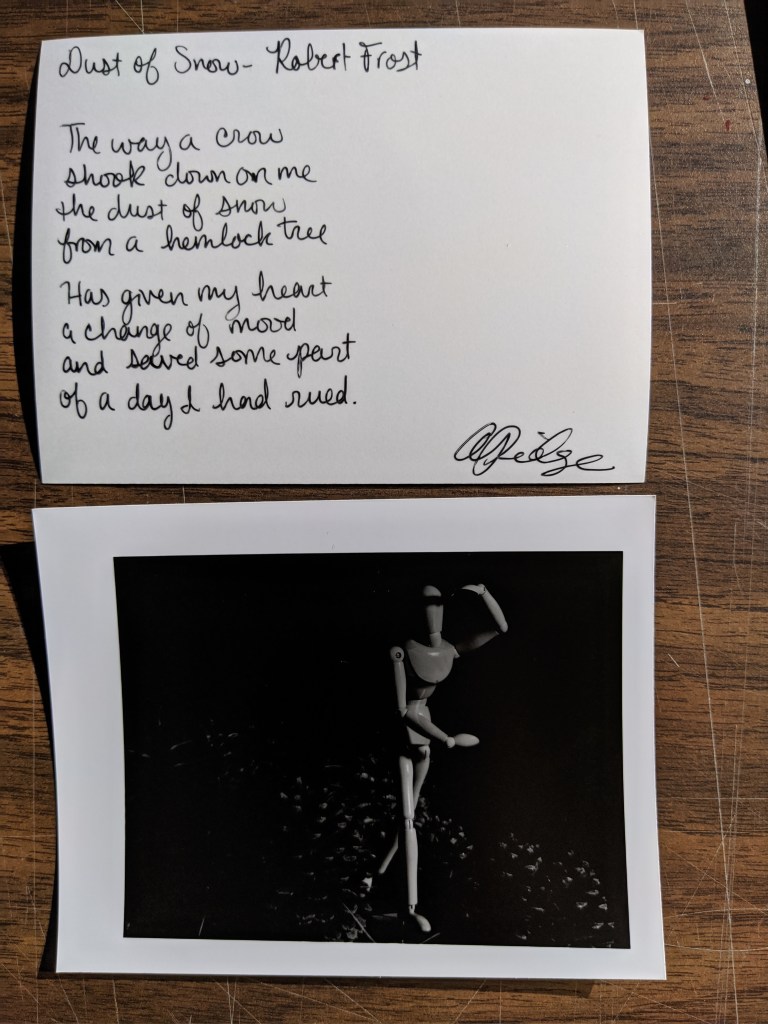 Dust of Snow- Robert Frost
The way a crow
shook down on me
the dust of snow
from a hemlock tree
Has given my heart
a change of mood
and saved some part
of a day I had rued.